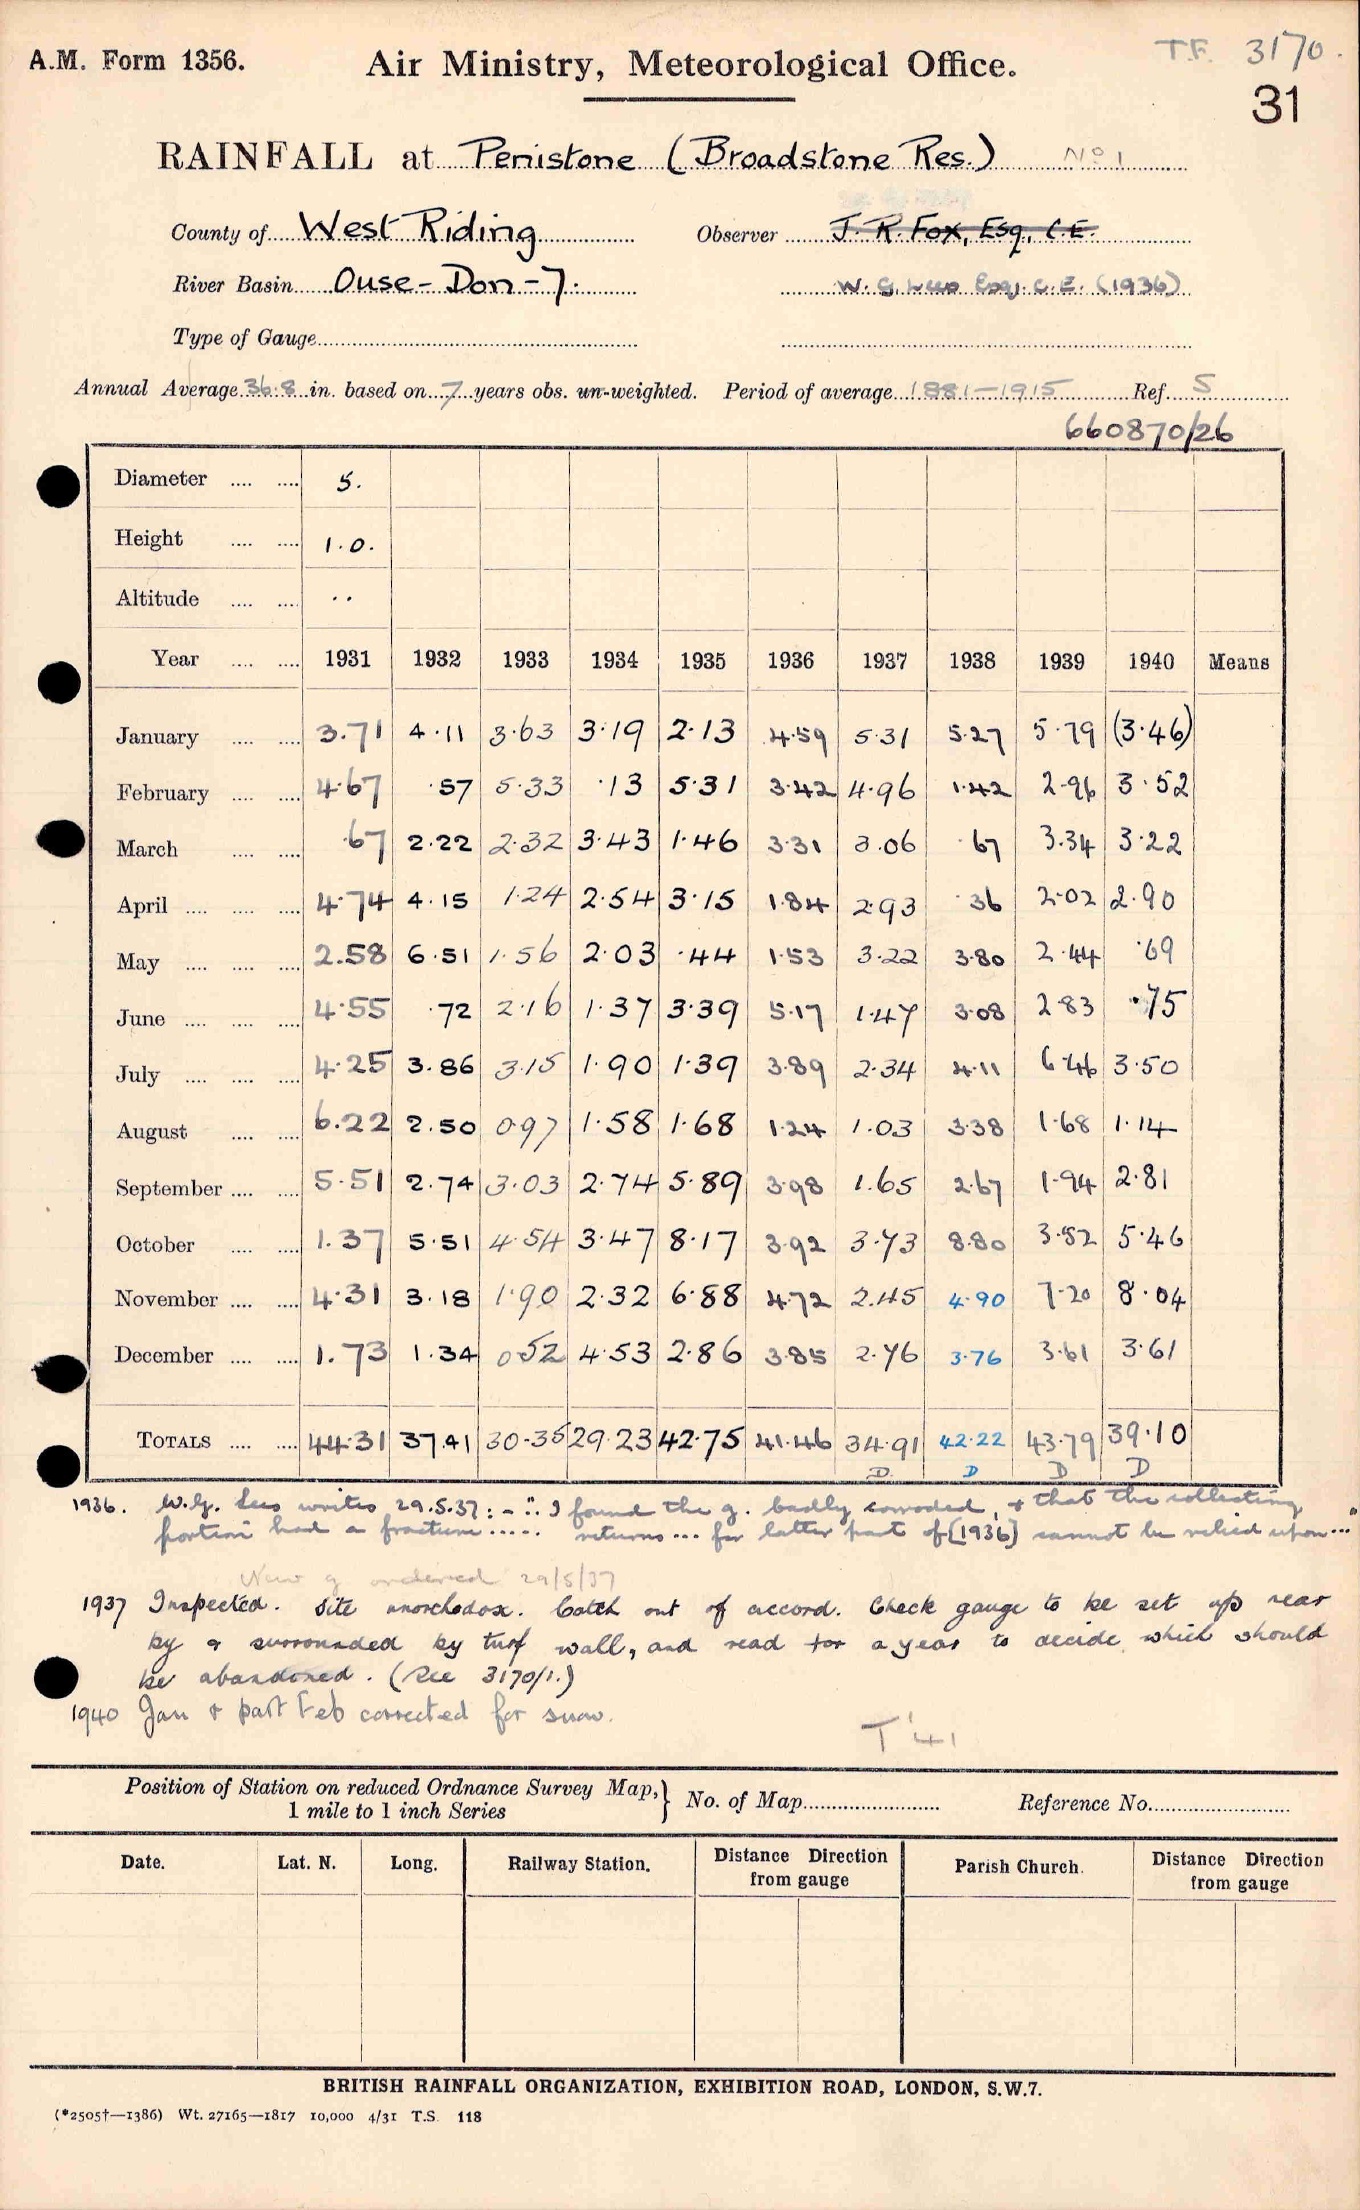 T.F. 3170.
A.M. Form 1356. Air Ministry, Meteorological Office.
31
RAINFALL at Penistone (Broadstone Res.) No 1
County of West Riding Observer J. R. Fox, Esq., C.E.
River Basin Ouse - Don - 7. W. G. Lees Esq. C.E. (1936)
Type of Gauge
Annual Average 36.8 in. based on 7 years obs. un-weighted. Period of average 1881-1915 Ref. S
660870/26
Diameter 5.
Height 1.0.
Altitude ..
Year 1931 1932 1933 1934 1935 1936 1937 1938 1939 1940 Means
January 3.71 4.11 3.63 3.19 2.13 4.59 5.31 5.27 5.79 (3.46)
February 4.67 .57 5.33 .13 5.31 3.42 4.96 1.42 2.96 3.52
March .67 2.22 2.32 3.43 1.46 3.31 3.06 .67 3.34 3.22
April 4.74 4.15 1.24 2.54 3.15 1.84 2.93 .36 2.02 2.90
May 2.58 6.51 1.56 2.03 .44 1.53 3.22 3.80 2.44 .69
June 4.55 .72 2.16 1.37 3.39 5.17 1.47 3.08 2.83 .75
July 4.25 3.86 3.15 1.90 1.39 3.89 2.34 4.11 6.46 3.50
August 6.22 2.50 0.97 1.58 1.68 1.24 1.03 3.38 1.68 1.14
September 5.51 2.74 3.03 2.74 5.89 3.98 1.65 2.67 1.94 2.81
October 1.37 5.51 4.54 3.47 8.17 3.92 3.73 8.80 3.52 5.46
November 4.31 3.18 1.90 2.32 6.88 4.72 2.45 4.90 7.20 8.04
December 1.73 1.34 0.52 4.53 2.86 3.85 2.76 3.76 3.61 3.61
TOTALS 44.31 37.41 30.35 29.23 42.75 41.46 34.91 42.22 43.79 39.10
D D D D
1936. W.G. Lees writes 29.5.37: - ".. I found the g. badly corroded, & that the collecting
portion had a fracture..... returns... for latter part of [1936] cannot be relied upon..."
New g ordered 29/5/37
1937 Inspected. Site unorthodox. Catch out of accord. Check gauge to be set up near
by & surrounded by turf wall, and read for a year to decide which should
be abandoned. (See 3170/1.)
1940 Jan & part Feb corrected for snow.
T '41
Position of Station on reduced Ordnance Survey Map, 1 mile to 1 inch Series } No. of Map Reference No.
Date. Lat. N. Long. Railway Station. Distance Direction from gauge Parish Church. Distance Direction from gauge
BRITISH RAINFALL ORGANIZATION, EXHIBITION ROAD, LONDON, S.W.7.
(*2505†—1386) Wt. 27165—1817 10,000 4/31 T.S. 118